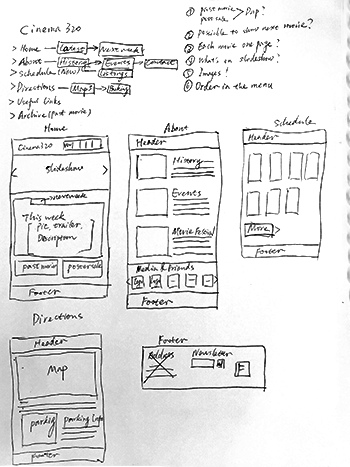 Cinema 320
> Home → Latest → Next week
> About → History → Events → Contact
> Schedule (New) → Listings
> Directions → Maps → Parking
> Useful Links
> Archive (past movie)
① past movie > Pop?
post sale
② possible to show next movie?
③ Each movie one page?
④ What's on slideshow?
⑤ Images!
⑥ Order in the menu
Home
Cinema320
Slideshow
This week
Pic, trailer,
Description
past movie
poster sale
Footer
About
Header
History
Events
Movie Festival
Media & Friends
logo logo
Footer
Schedule
Header
More >
Footer
Directions
Header
Map
parking
parking Info
Footer
Footer
Address
Newsletter
F